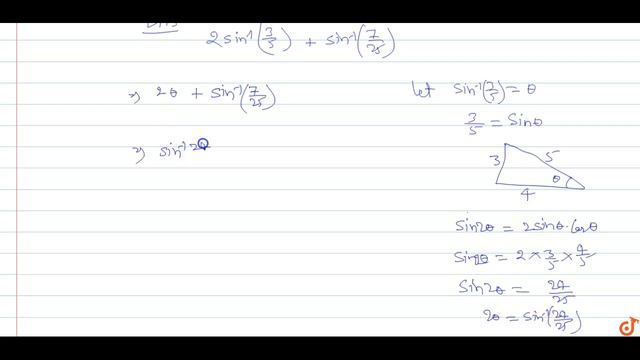 2sin⁻¹(3/5) + sin⁻¹(7/25)
⇒ 2θ + sin⁻¹(7/25)
⇒ sin⁻¹ 24
let sin⁻¹(3/5) = θ
3/5 = sinθ
3 5
θ
4
sin2θ = 2sinθ·cosθ
sin2θ = 2 × 3/5 × 4/5
sin2θ = 24/25
2θ = sin⁻¹(24/25)